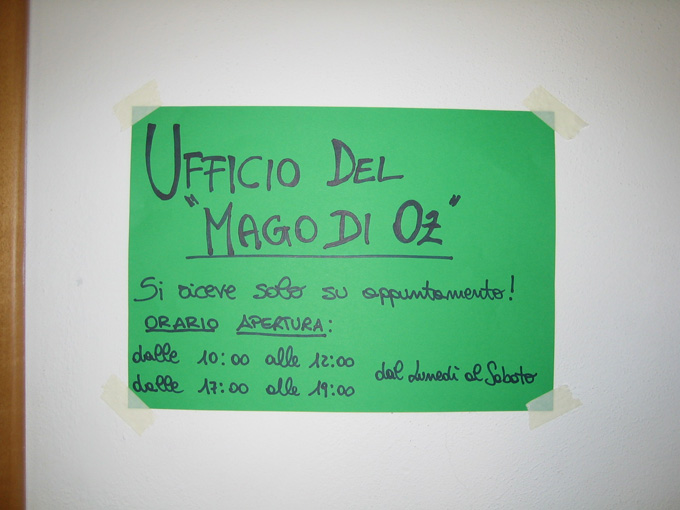 UFFICIO DEL
"MAGO DI OZ"
Si riceve solo su appuntamento!
ORARIO APERTURA:
dalle 10:00 alle 12:00
dalle 17:00 alle 19:00
dal Lunedì al Sabato